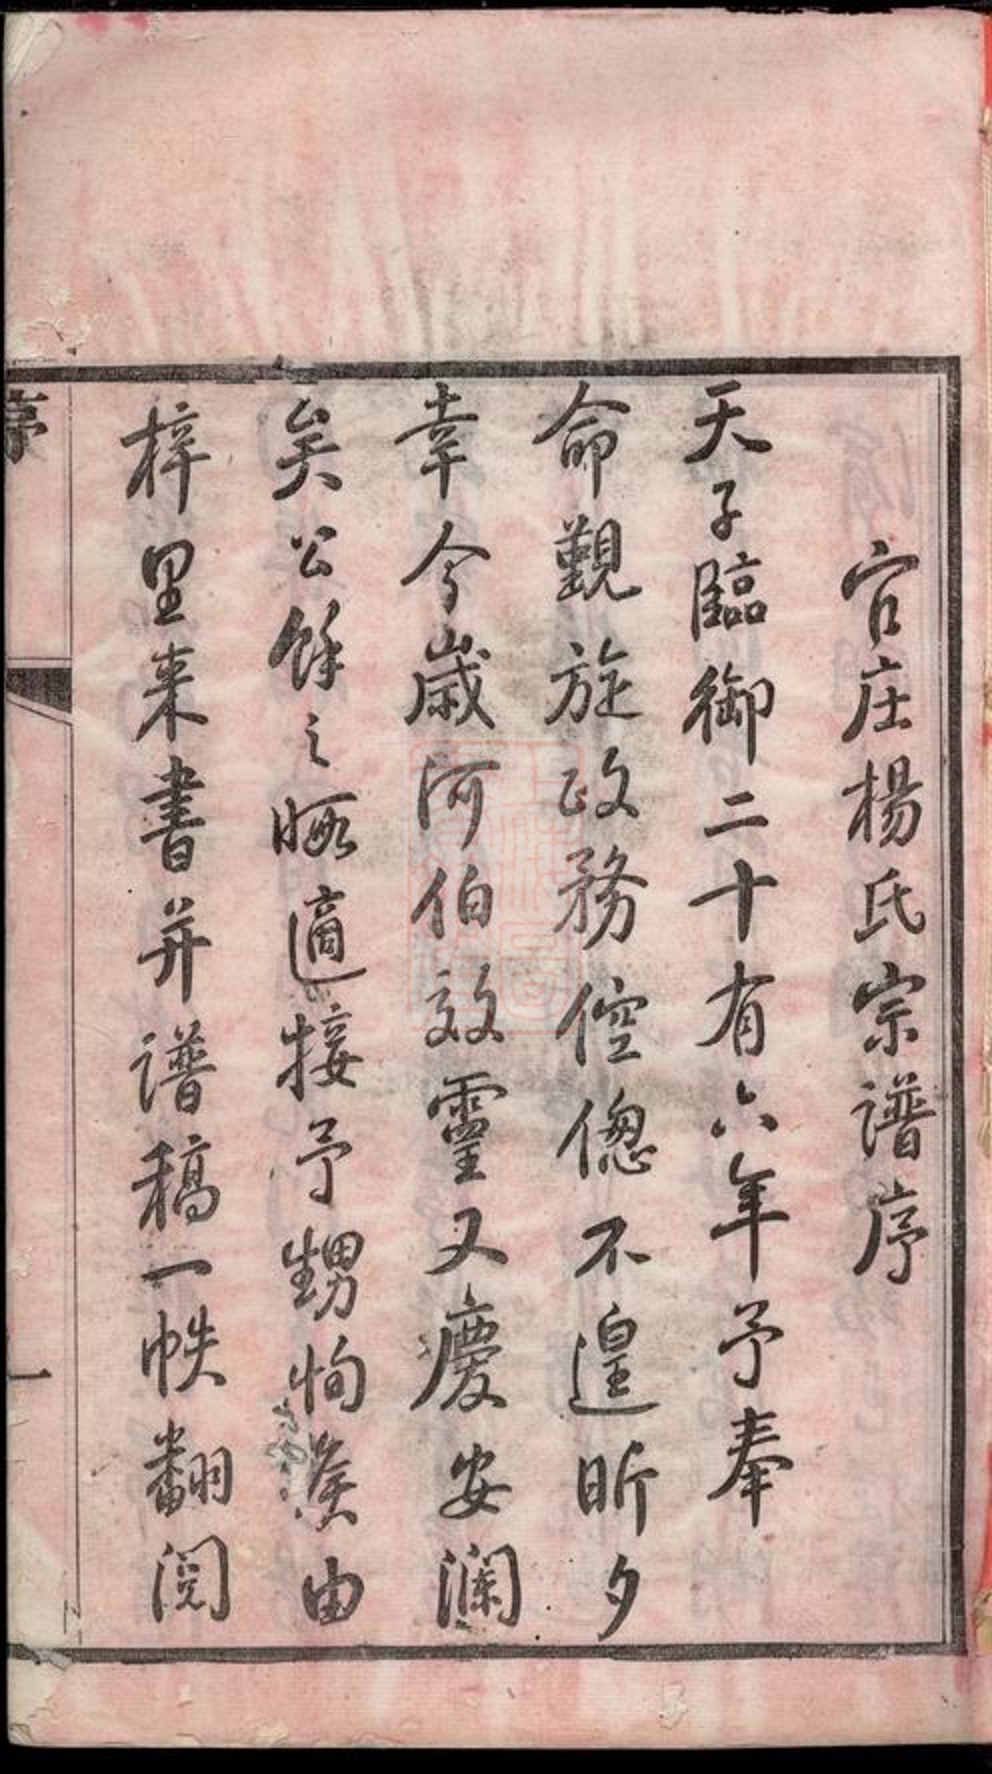 官庄楊氏宗譜序
天子臨御二十有六年予奉
命觀旋政務倥偬不遑昕夕
幸今歲河伯效靈又慶安瀾
矣公餘之暇適接予甥恂 由
梓里来書并譜稿一帙翻閱
序
一